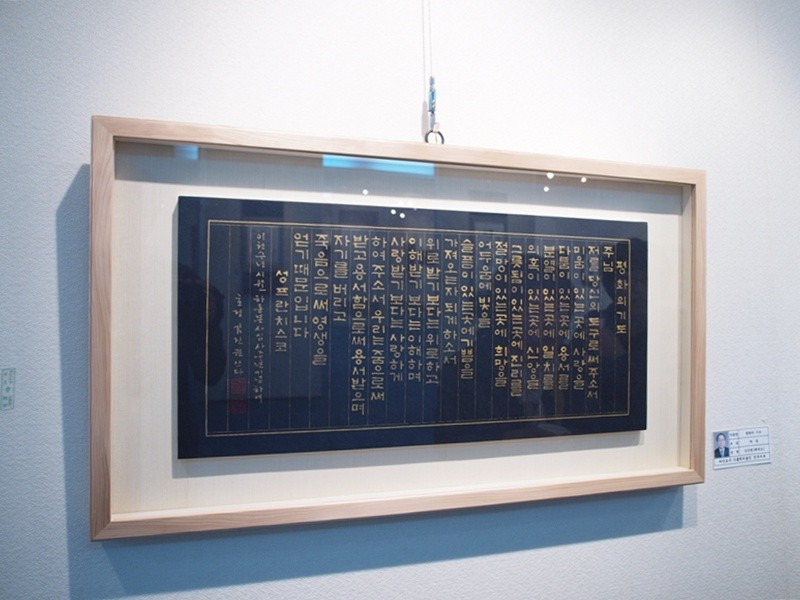 평화의기도
주님
저를당신의도구로써주소서
미움이있는곳에사랑을
다툼이있는곳에용서를
분열이있는곳에일치를
의혹이있는곳에신앙을
그릇됨이있는곳에진리를
절망이있는곳에희망을
어두움에빛을
슬픔이있는곳에기쁨을
가져오는자되게하소서
위로받기보다는위로하고
이해받기보다는이해하며
사랑받기보다는사랑하게
하여주소서우리는줌으로써
받고용서함으로써용서받으며
자기를버리고
죽음으로써영생을
얻기때문입니다
성프란치스코